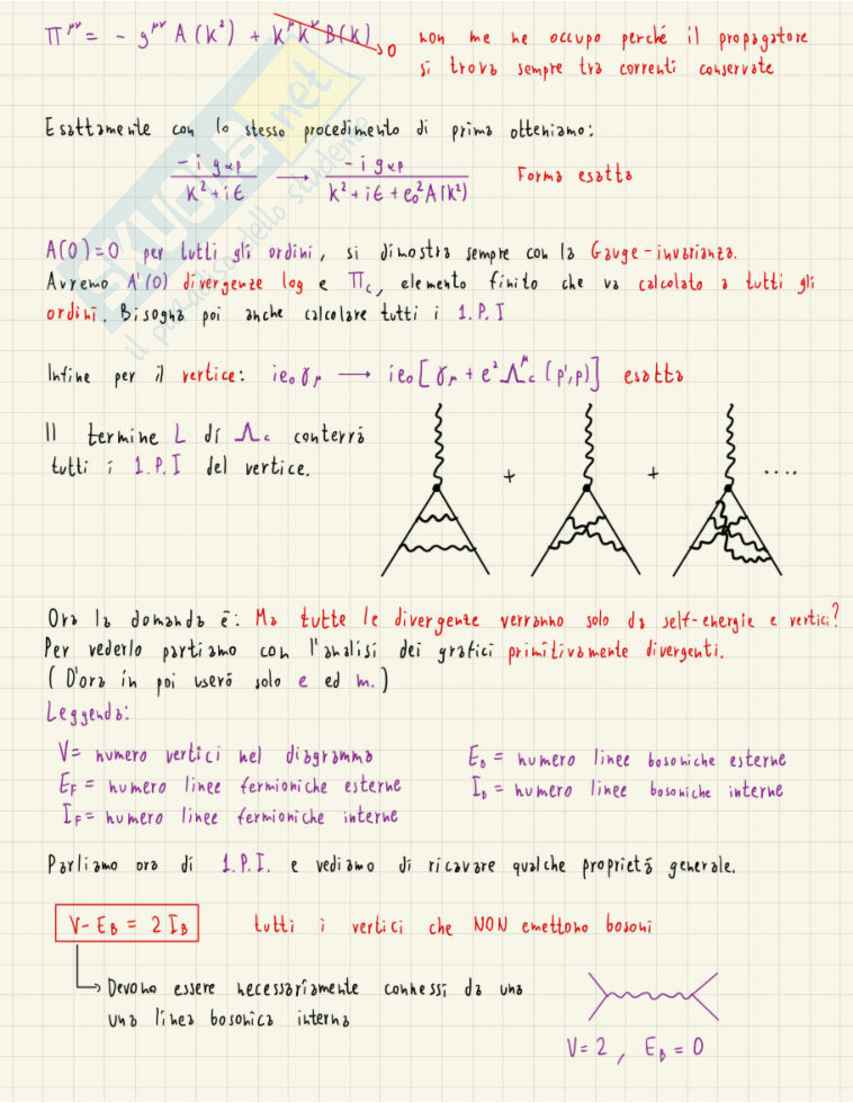 Π^μν = - g^μν A(k²) + k^μ k^ν B(k) → 0 non me ne occupo perché il propagatore
si trova sempre tra correnti conservate
Esattamente con lo stesso procedimento di prima otteniamo:
-i gαβ / k²+iε → -i gαβ / k²+iε+e₀²A(k²) Forma esatta
A(0)=0 per tutti gli ordini, si dimostra sempre con la Gauge-invarianza.
Avremo A'(0) divergenze log e Πc, elemento finito che va calcolato a tutti gli
ordini. Bisogna poi anche calcolare tutti i 1.P.I
Infine per il vertice: ie₀γμ → ie₀[γμ + e²Λ^μc (p',p)] esatta
Il termine L di Λc conterrà
tutti i 1.P.I del vertice.
+ + ....
Ora la domanda è: Ma tutte le divergenze verranno solo da self-energie e vertici?
Per vederlo partiamo con l'analisi dei grafici primitivamente divergenti.
(D'ora in poi userò solo e ed m.)
Leggenda:
V= numero vertici nel diagramma E_B = numero linee bosoniche esterne
E_F = numero linee fermioniche esterne I_B = numero linee bosoniche interne
I_F = numero linee fermioniche interne
Parliamo ora di 1.P.I. e vediamo di ricavare qualche proprietà generale.
V-E_B = 2 I_B tutti i vertici che NON emettono bosoni
Devono essere necessariamente connessi da una
una linea bosonica interna
V=2 , E_B = 0
SKUOLA.net
il paradiso dello studente